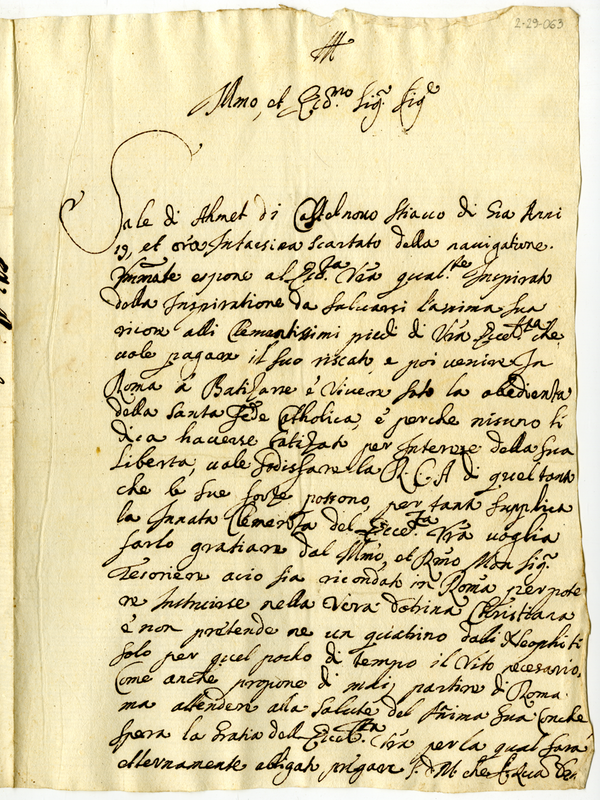 2-29-063
Illmo, et Eccmo. Sigr. Sigre
Sale di Ahmet di Castelnovo Stiavo di Sua Anni
19, et ora Intaesiea scartato della navigatione.
Ummte espone al Eccza Vra qualte Inspirati
della Inspiratione da salvarsi l'anima sua
ricore alli Clementissimi piedi di Vra Eccelza che
vole pagare il suo riscato e poi venire In
Roma à Batizare è Vivere soto la obedienta
della Santa Fede Catholica, è perche nisuno ti
dica havesse batizato per Interese della sua
Liberta, vole sodisfare la R. C. A di quel tanto
che le sue forze possono, per tanto supplica
la Innata Clemenza del Eccza. Vra voglia
farlo gratiare dal Illmo, et Rmo Mon Sigr.
Tesoriere acio sia ricondoto in Roma per pote
re Instruirse nella Vera dotrina Christiana
è non pretende ne un quatrino dali Neophiti
solo per quel pocho di tempo il Vito necesario,
Come anche propone di mai, partire di Roma.
ma attendere alla salute del Anima sua Conche
spera la Gratia dell Eccelza. Vra per la qual sara
etternamente obligato pregare S. D. M che